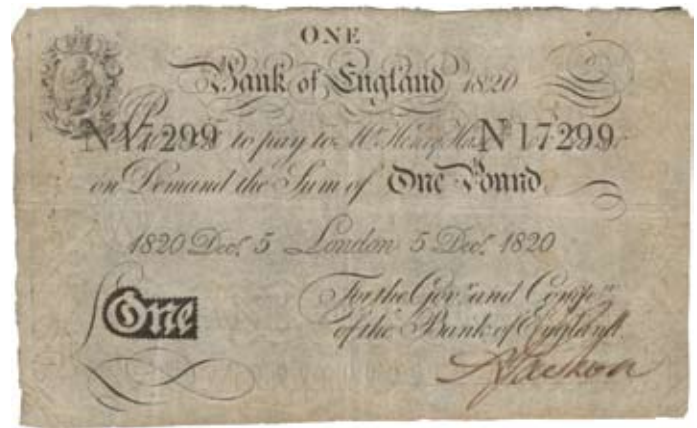 ONE
Bank of England 1820
No 17299 to pay to Mr. Henry Hase No 17299
on Demand the Sum of One Pound
1820 Decr. 5 London 5 Decr. 1820
For the Govr. and Compa.
of the Bank of England.
One